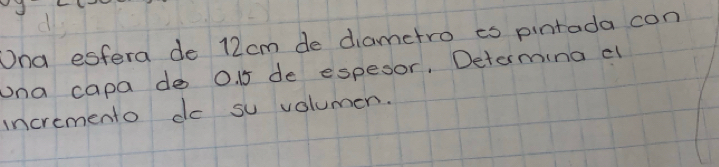 Una esfera de 12cm de diametro es pintada con
una capa de 0.15 de espesor. Determina el
incremento de su volumen.